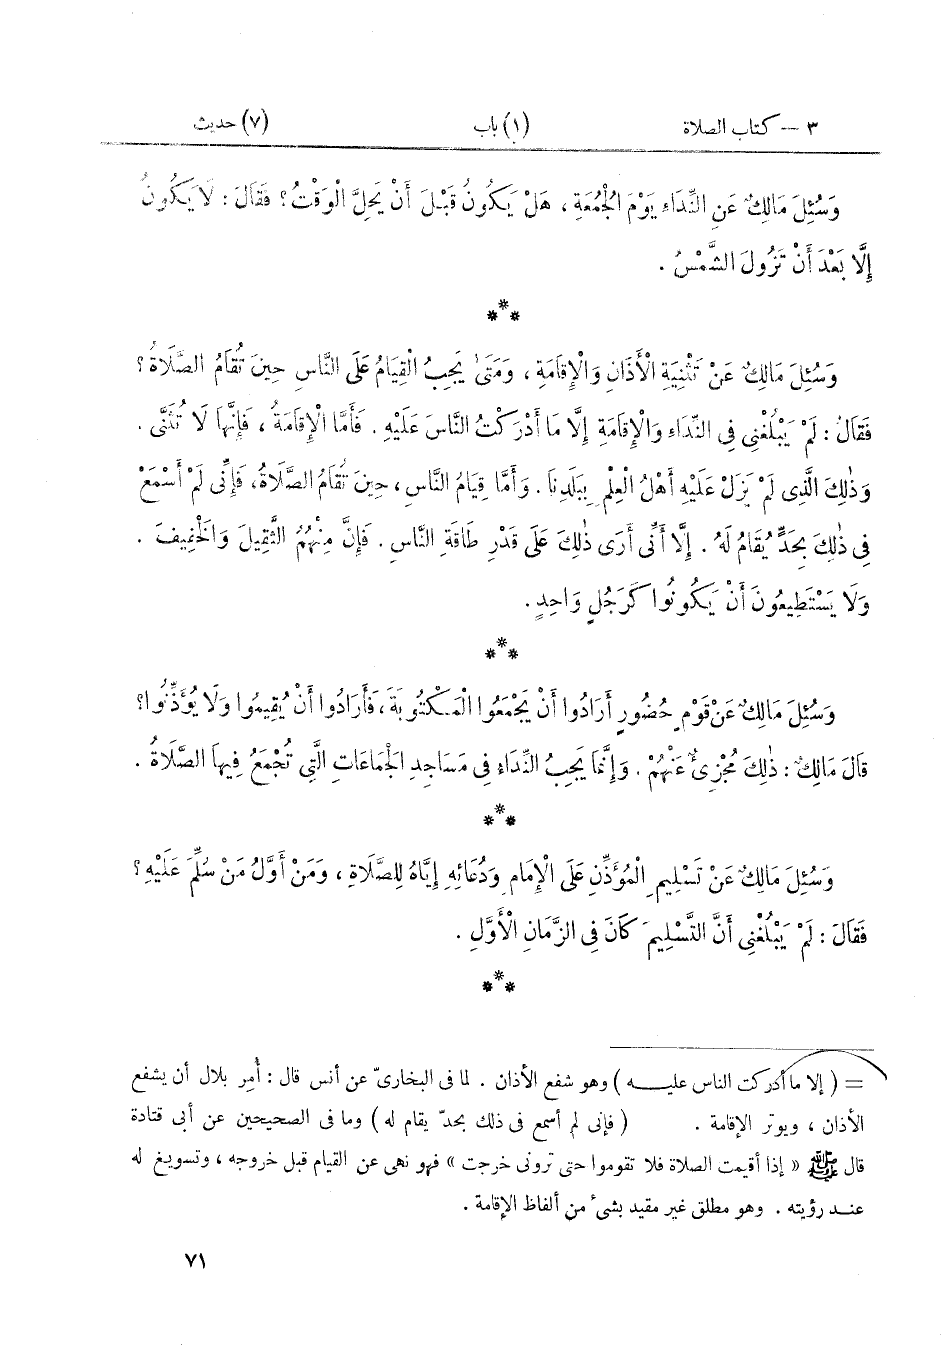 ٣ — كتاب الصلاة (١) باب (٧) حديث
وَسُئِلَ مَالِكٌ عَنِ النِّدَاءِ يَوْمَ الْجُمُعَةِ ، هَلْ يَكُونُ قَبْلَ أَنْ يَحِلَّ الْوَقْتُ ؟ فَقَالَ : لَا يَكُونُ
إِلَّا بَعْدَ أَنْ تَزُولَ الشَّمْسُ .
***
وَسُئِلَ مَالِكٌ عَنْ تَثْنِيَةِ الْأَذَانِ وَالْإِقَامَةِ ، وَمَتَى يَجِبُ الْقِيَامُ عَلَى النَّاسِ حِينَ تُقَامُ الصَّلَاةُ ؟
فَقَالَ : لَمْ يَبْلُغْنِى فِى النِّدَاءِ وَالْإِقَامَةِ إِلَّا مَا أَدْرَكْتُ النَّاسَ عَلَيْهِ . فَأَمَّا الْإِقَامَةُ ، فَإِنَّهَا لَا تُثَنَّى .
وَذٰلِكَ الَّذِى لَمْ يَزَلْ عَلَيْهِ أَهْلُ الْعِلْمِ بِبَلَدِنَا . وَأَمَّا قِيَامُ النَّاسِ ، حِينَ تُقَامُ الصَّلَاةُ ، فَإِنِّى لَمْ أَسْمَعْ
فِى ذٰلِكَ بِحَدٍّ يُقَامُ لَهُ . إِلَّا أَنِّى أَرَى ذٰلِكَ عَلَى قَدْرِ طَاقَةِ النَّاسِ . فَإِنَّ مِنْهُمُ الثَّقِيلَ وَالْخَفِيفَ .
وَلَا يَسْتَطِيعُونَ أَنْ يَكُونُوا كَرَجُلٍ وَاحِدٍ .
***
وَسُئِلَ مَالِكٌ عَنْ قَوْمٍ حُضُورٍ أَرَادُوا أَنْ يَجْمَعُوا الْمَكْتُوبَةَ ، فَأَرَادُوا أَنْ يُقِيمُوا وَلَا يُؤَذِّنُوا ؟
قَالَ مَالِكٌ : ذٰلِكَ مُجْزِئٌ عَنْهُمْ . وَإِنَّمَا يَجِبُ النِّدَاءُ فِى مَسَاجِدِ الْجَمَاعَاتِ الَّتِى تُجْمَعُ فِيهَا الصَّلَاةُ .
***
وَسُئِلَ مَالِكٌ عَنْ تَسْلِيمِ الْمُؤَذِّنِ عَلَى الْإِمَامِ وَدُعَائِهِ إِيَّاهُ لِلصَّلَاةِ ، وَمَنْ أَوَّلُ مَنْ سُلِّمَ عَلَيْهِ ؟
فَقَالَ : لَمْ يَبْلُغْنِى أَنَّ التَّسْلِيمَ كَانَ فِى الزَّمَانِ الْأَوَّلِ .
***
= ( إلا ما أدركت الناس عليـــه ) وهو شفع الأذان . لما فى البخارىّ عن أنس قال : أُمِر بلال أن يشفع
الأذان ، ويوتر الإقامة . ( فإنى لم أسمع فى ذلك بحدّ يقام له ) وما فى الصحيحين عن أبى قتادة
قال ﷺ « إذا أقيمت الصلاة فلا تقوموا حتى ترونى خرجت » فهو نهى عن القيام قبل خروجه ، وتسويغ له
عنـد رؤيته . وهو مطلق غير مقيد بشىء من ألفاظ الإقامة .
٧١